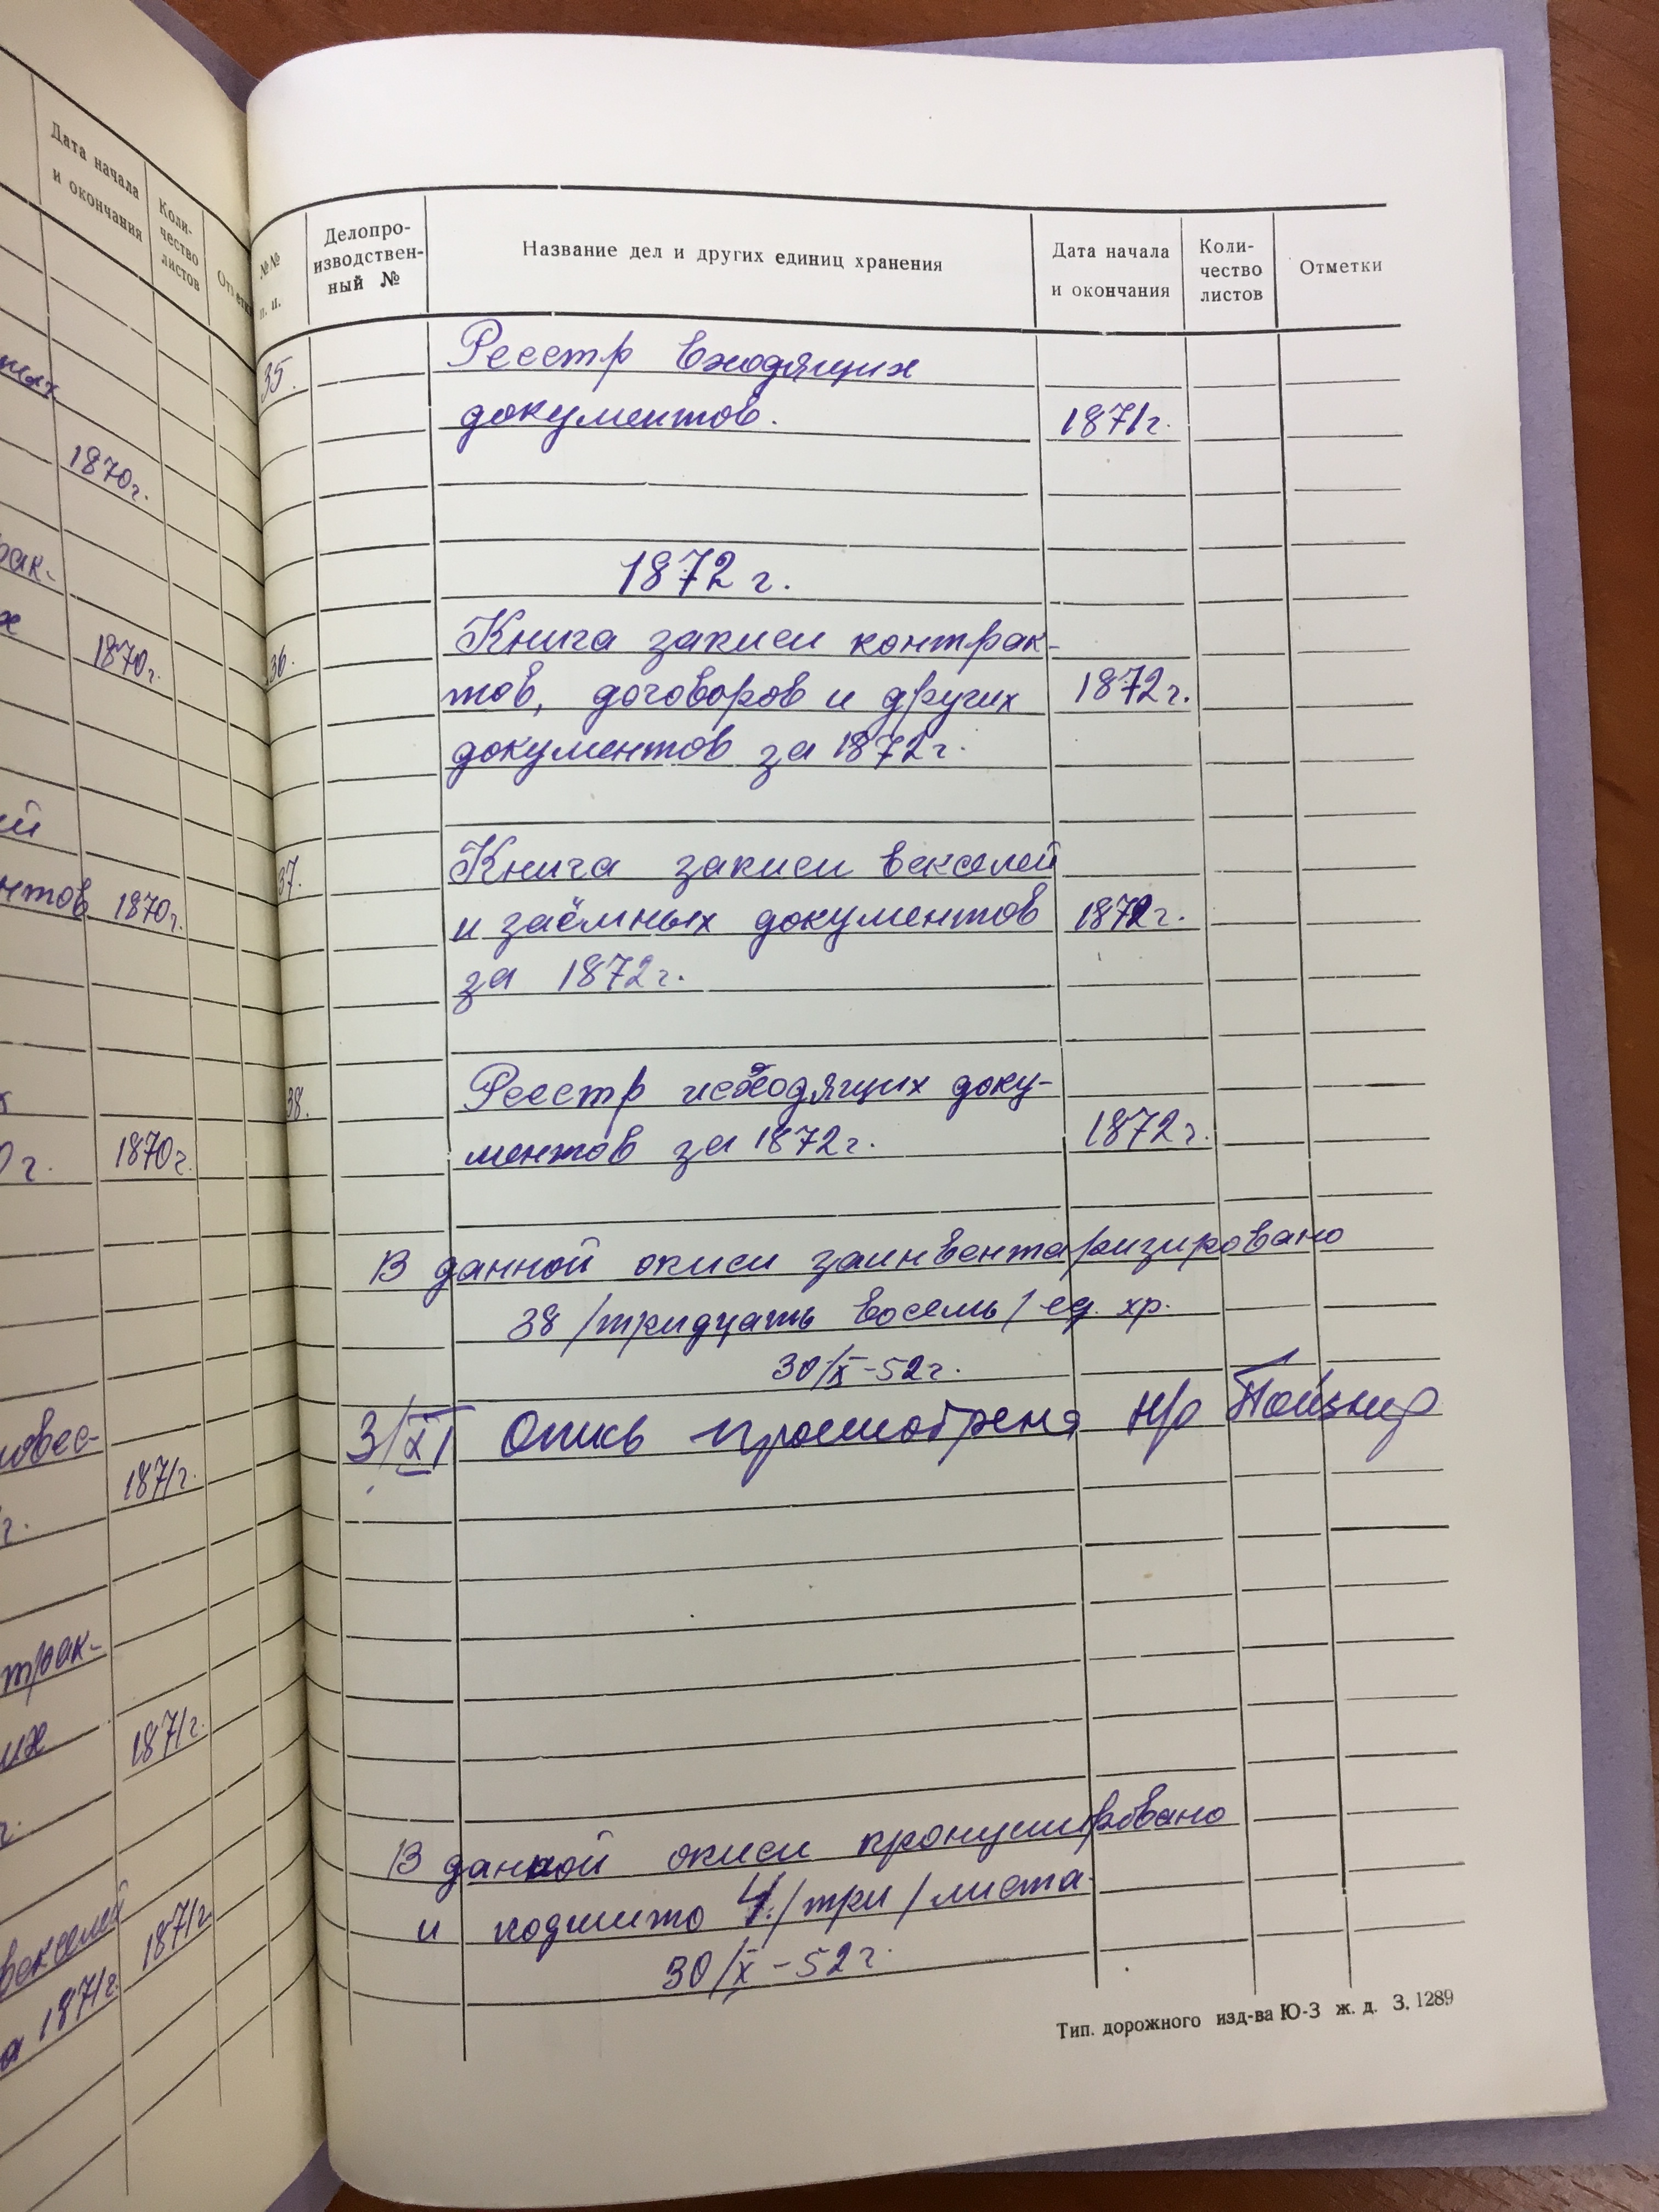 Дата начала
и окончания
Коли-
чество
листов
1870г.
рак-
1870г.
нтов 1870г.
г. 1870г.
1871г.
трак-
1871г.
векселей
1871г. 1871г.
№№
п. п.
Делопро-
изводствен-
ный №
Название дел и других единиц хранения
Дата начала
и окончания
Коли-
чество
листов
Отметки
35. Реестр входящих
документов. 1871г.
1872 г.
36. Книга записи контрак-
тов, договоров и других 1872г.
документов за 1872г.
37. Книга записи векселей
и заёмных документов 1872г.
за 1872г.
38. Реестр исходящих доку-
ментов за 1872г. 1872г.
В данной описи заинвентаризировано
38 /тридцать восемь/ ед. хр.
30/X-52г.
3/XI Опись просмотрена Н/р
В данной описи пронумировано
и подшито 4 /три/ листа
30/X-52г.
Тип. дорожного изд-ва Ю-З ж. д. З. 1289